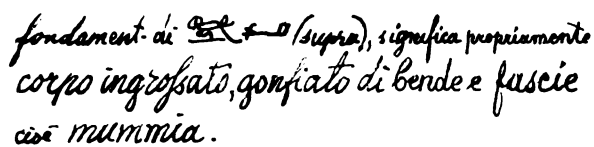 fondament. di (supra), significa propriamente
corpo ingrossato, gonfiato di bende e fascie
cioè mummia.